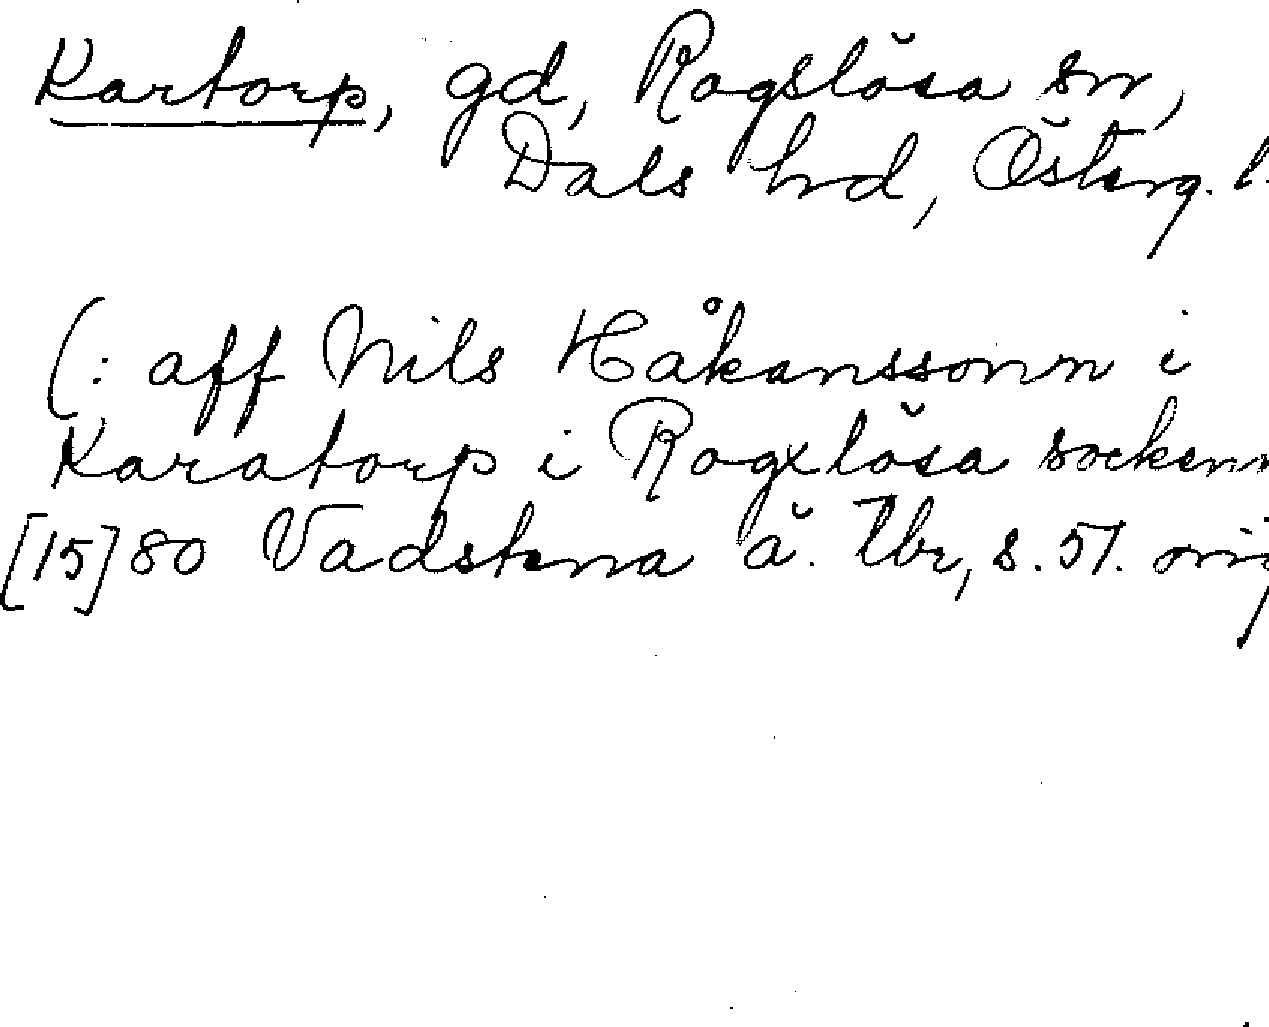 Kartorp, gd, Rogslösa sn,
Dals hd, Österg. l.
(: aff Nils Håkanssonn i
Karatorp i Rogxlösa sockenn
[15]80 Vadstena ä. tbr, s. 51. orig